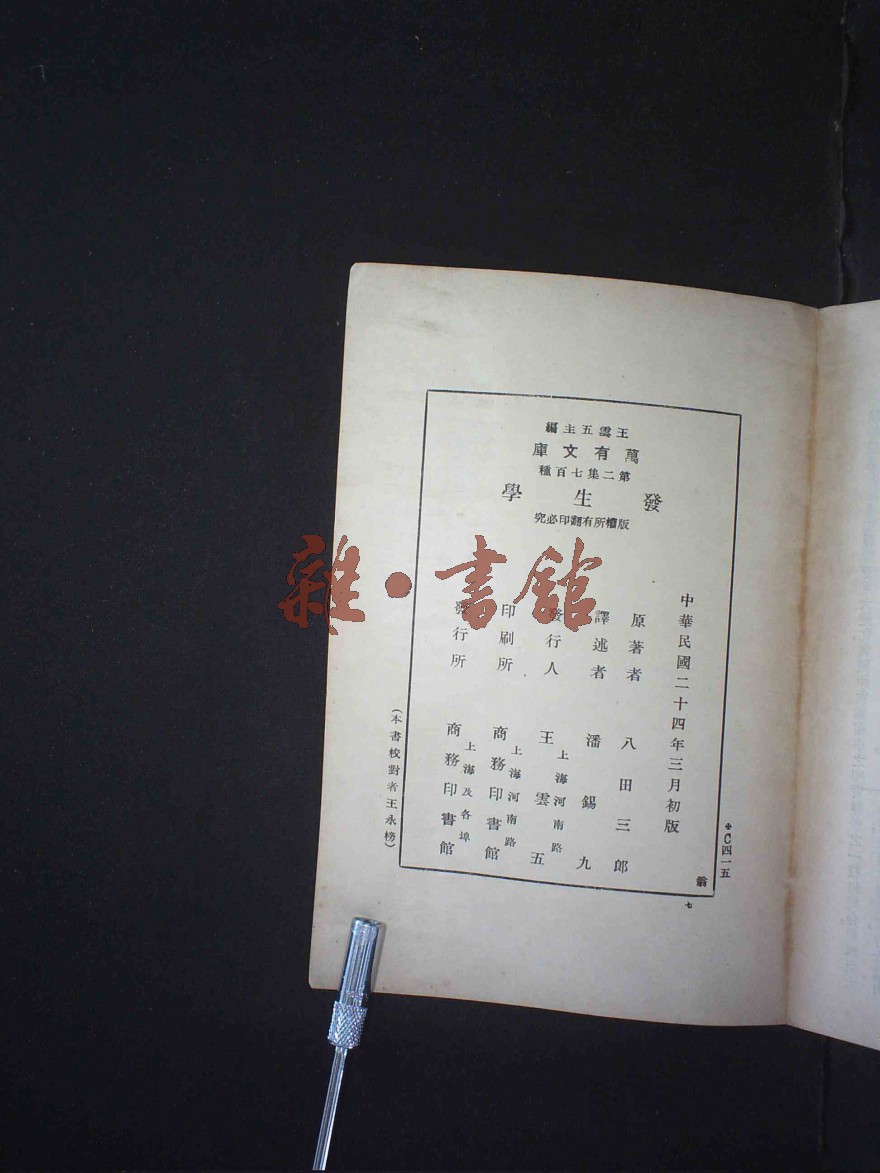 王雲五主編
萬有文庫
第二集七百種
發生學
版權所有翻印必究
中華民國二十四年三月初版
原著者 八田三郎
譯述者 潘錫九
發行人 王雲五 上海河南路
印刷所 商務印書館 上海河南路
發行所 商務印書館 上海及各埠
(本書校對者王永榜)
C四一五
翁
七
雜·書館